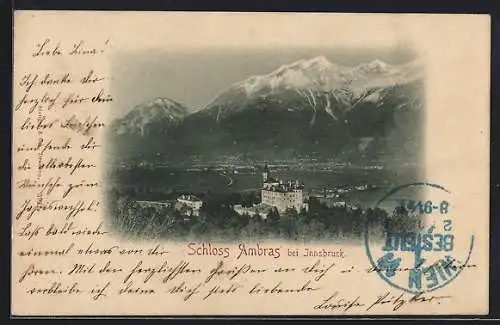 Liebe Lina!
Ich danke Dir
herzlich für dein
liebes
und sende dir
die allerbesten
Wünsche zum
Jahreswechsel!
Lass bald wieder
einmal etwas von dir
hören. Mit den herzlichsten Grüßen an dich u
verbleibe ich deine dich liebende
Louise
Schloss Ambras bei Innsbruck.
WIEN
BESTELLT